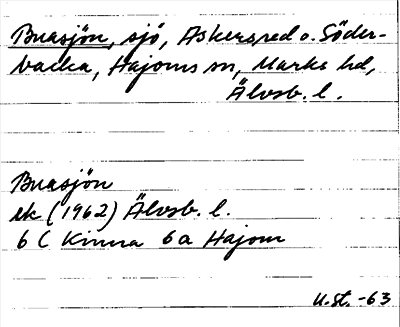 Buasjön, sjö, Askersred o. Söder-
backa, Hajoms sn, Marks hd,
Älvsb. l.
Buasjön
ek (1962) Älvsb. l.
6 C Kinna 6 a Hajom
U.st. -63